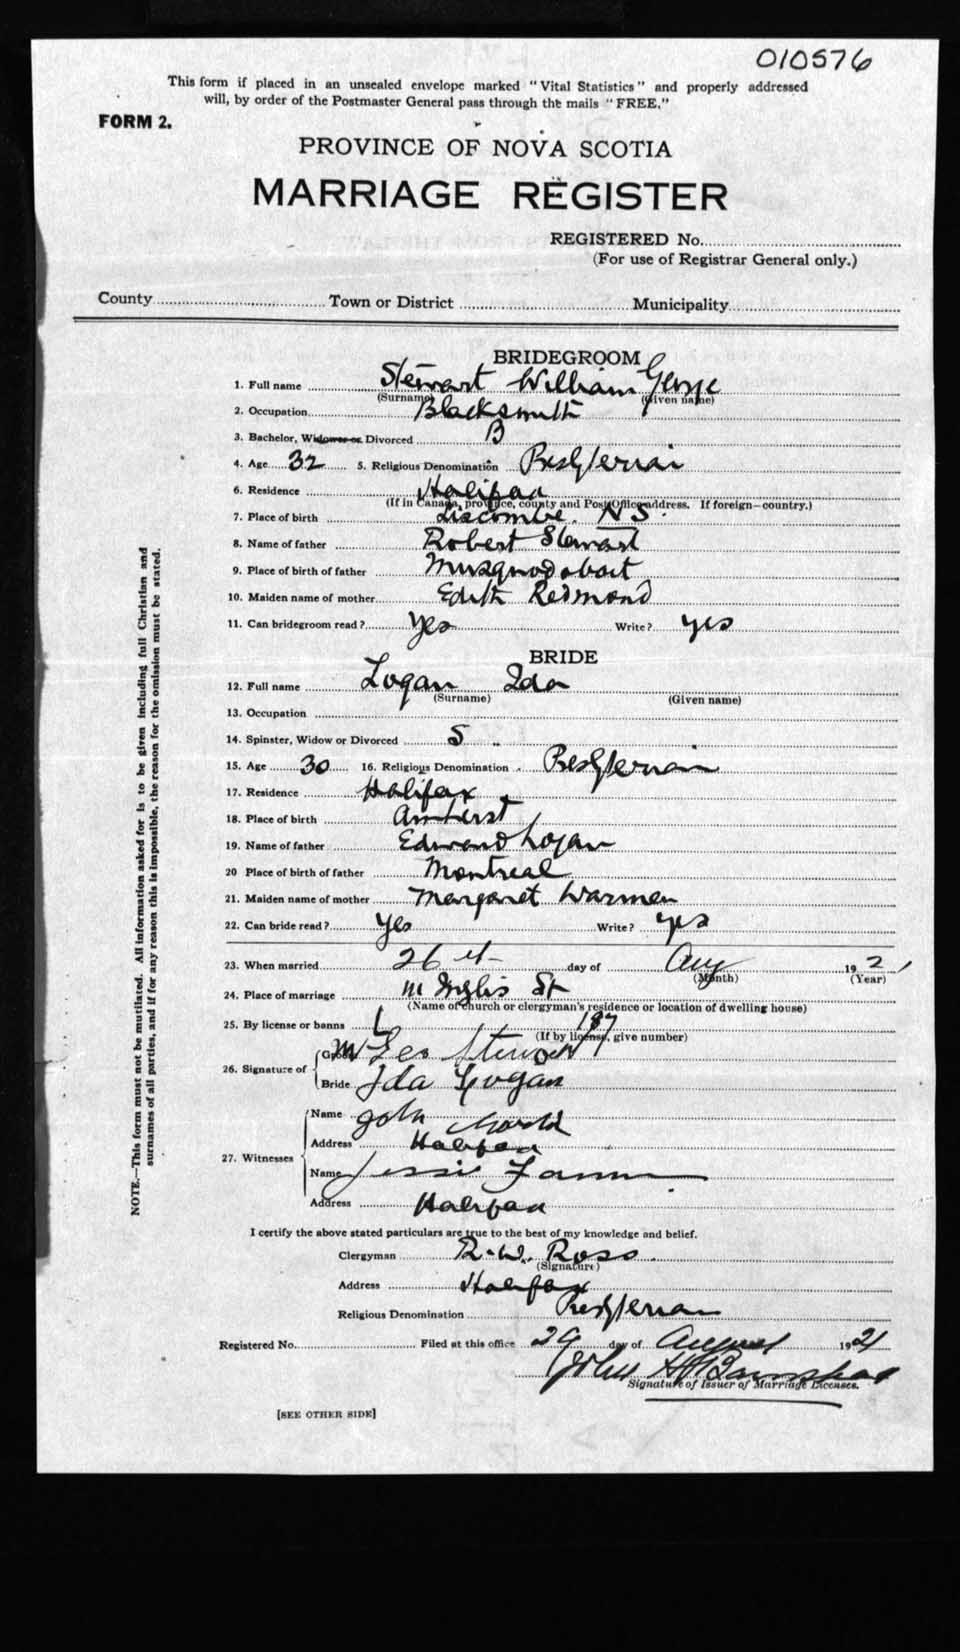 010576
This form if placed in an unsealed envelope marked "Vital Statistics" and properly addressed
will, by order of the Postmaster General pass through the mails "FREE."
FORM 2.
PROVINCE OF NOVA SCOTIA
MARRIAGE REGISTER
REGISTERED No.
(For use of Registrar General only.)
County Town or District Municipality
BRIDEGROOM
1. Full name Stewart William George
(Surname) (Given name)
2. Occupation Blacksmith
3. Bachelor, Widower or Divorced B
4. Age 32 5. Religious Denomination Presbyterian
6. Residence Halifax
(If in Canada, province, county and Post Office address. If foreign—country.)
7. Place of birth Liscombe. N.S.
8. Name of father Robert Stewart
9. Place of birth of father Musquodoboit
10. Maiden name of mother Edith Redmond
11. Can bridegroom read? Yes Write? yes
BRIDE
12. Full name Logan Ida
(Surname) (Given name)
13. Occupation
14. Spinster, Widow or Divorced S
15. Age 30 16. Religious Denomination Presbyterian
17. Residence Halifax
18. Place of birth Amherst
19. Name of father Edward Logan
20 Place of birth of father Montreal
21. Maiden name of mother Margaret Warmen
22. Can bride read? Yes Write? yes
23. When married 26th day of Aug 1921
(Month) (Year)
24. Place of marriage Inglis St
(Name of church or clergyman's residence or location of dwelling house)
25. By license or banns L 187
(If by license, give number)
26. Signature of Groom Geo Stewart
Bride Ida Logan
27. Witnesses
Name John
Address Halifax
Name Jessie
Address Halifax
I certify the above stated particulars are true to the best of my knowledge and belief.
Clergyman R. W. Ross
(Signature)
Address Halifax
Religious Denomination Presbyterian
Registered No. Filed at this office 29 day of August 1921
John
Signature of Issuer of Marriage Licenses.
[SEE OTHER SIDE]
NOTE.—This form must not be mutilated. All information asked for is to be given including full Christian and
surnames of all parties, and if for any reason this is impossible, the reason for the omission must be stated.